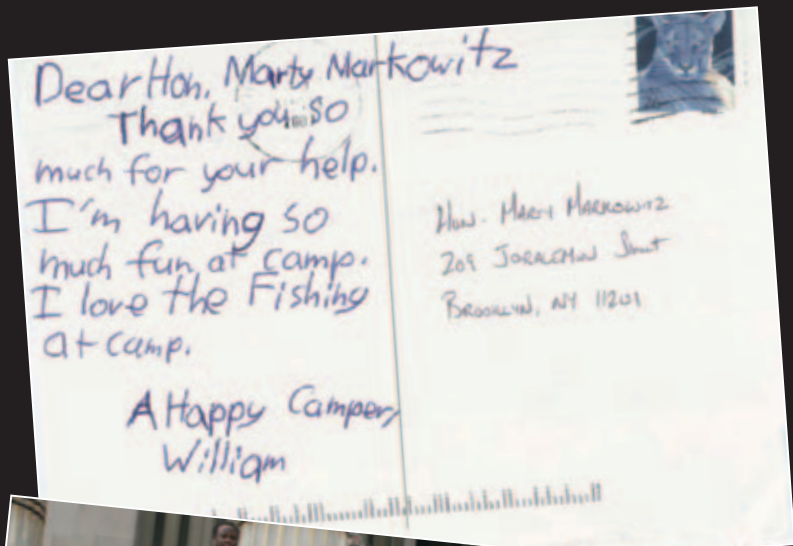 Dear Hon. Marty Markowitz
Thank you so
much for your help.
I'm having so
much fun at camp.
I love the Fishing
at camp.
A Happy Camper,
William
Hon. Marty Markowitz
209 Joralemon Street
Brooklyn, NY 11201